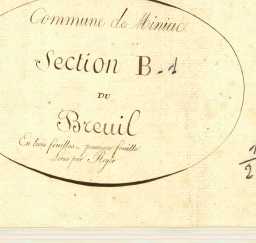 Commune de Miniac
Section B.1
DU
Breuil
En trois feuilles. premiere feuille
Levé par
1
2